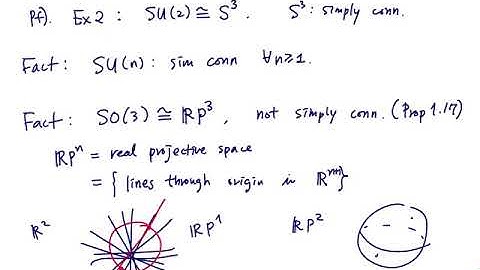 Pf). Ex2 : SU(2) ≅ S³. S³: simply conn.
Fact: SU(n): sim conn ∀n≥1.
Fact: SO(3) ≅ ℝP³, not simply conn. (Prop 1.17)
ℝPⁿ = real projective space
= { lines through origin in ℝⁿ⁺¹}
ℝ² ℝP¹ ℝP²